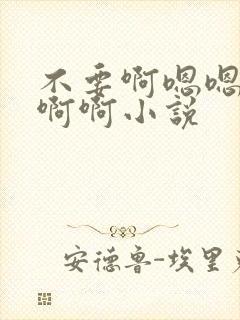 不要啊嗯嗯
啊啊小説
安德鲁-埃里